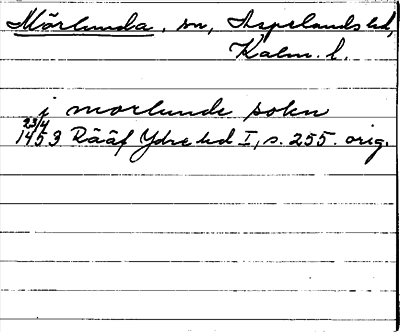 Mörlunda, sn, Aspelands hd,
Kalm. l.
j morlunde sokn
23/4
1453 Rääf Ydre hd I, s. 255. orig.